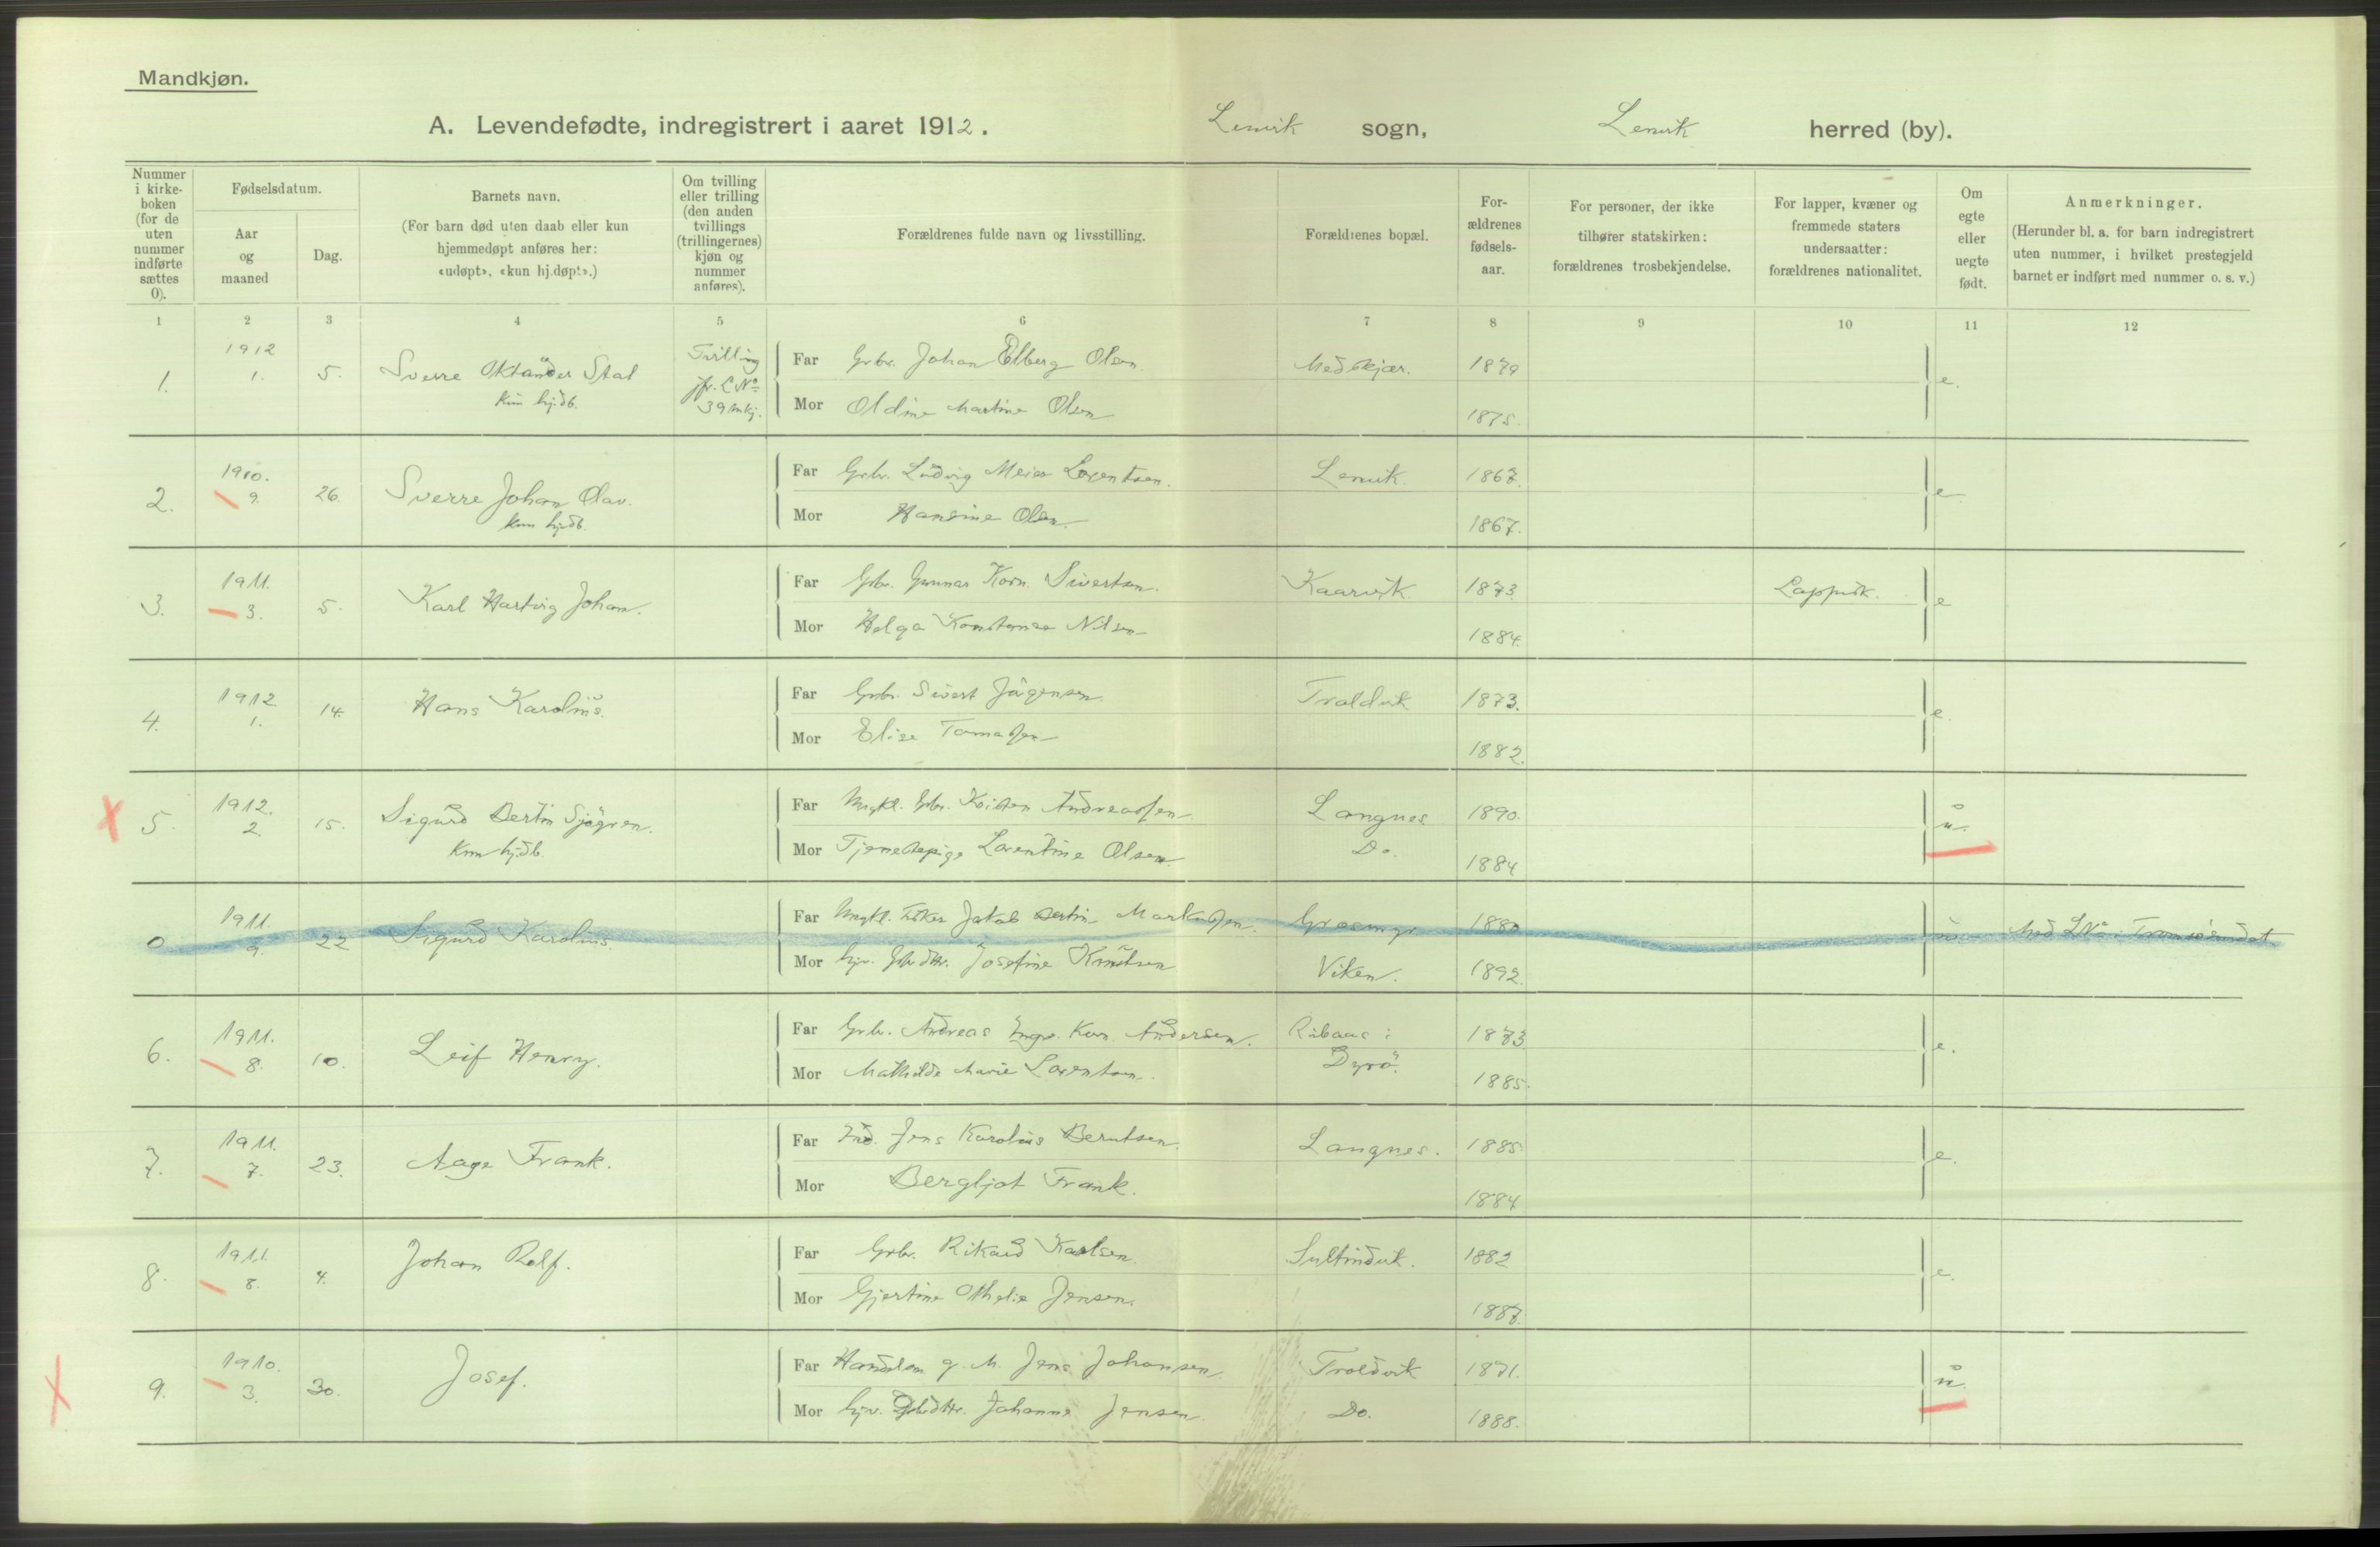 Mandkjøn.
A. Levendefødte, indregistrert i aaret 1912. Lenvik sogn, Lenvik herred (by).
Nummer i kirke-boken (for de uten nummer indførte sættes 0).
Fødselsdatum.
Aar og maaned
Dag.
Barnets navn.
(For barn død uten daab eller kun hjemmedøpt anføres her: «udøpt», «kun hj.døpt».)
Om tvilling eller trilling (den anden tvillings (trillingernes) kjøn og nummer anføres).
Forældrenes fulde navn og livsstilling.
Forældrenes bopæl.
For-ældrenes fødsels-aar.
For personer, der ikke tilhører statskirken: forældrenes trosbekjendelse.
For lapper, kvæner og fremmede staters undersaatter: forældrenes nationalitet.
Om egte eller uegte født.
Anmerkninger.
(Herunder bl. a. for barn indregistrert uten nummer, i hvilket prestegjeld barnet er indført med nummer o. s. v.)
1 2 3 4 5 6 7 8 9 10 11 12
1. 1912 1. 5. Sverre Oktander Stal Tvilling
kun hj.db. jfr. L.No 39 mkj.
Far Grbr. Johan Elberg Olsen Medskjær. 1879 e.
Mor Oldine Martine Olsen 1875.
2. 1910. 9. 26. Sverre Johan Olav.
kun hj.db.
Far Grbr. Ludvig Meier Lorentsen. Lenvik. 1867. e
Mor Hansine Olsen. 1867.
3. 1911. 3. 5. Karl Hartvig Johan.
Far Grbr. Gunnar Korn. Sivertsen. Kaarvik. 1873. Lappisk. e
Mor Helga Konstanse Nilsen 1884.
4. 1912. 1. 14. Hans Karolius.
Far Grbr. Sivert Jørgensen. Troldvik. 1873. e.
Mor Elise Tomassen 1882.
5. 1912. 2. 15. Sigurd Bertin Sjøgren.
Kun hj.db.
Far Ungkl. Grbr. Kristen Andreassen Langnes 1890. u.
Mor Tjenestepige Lorentine Olsen. Do. 1884
0 1911. 9. 22 Sigurd Karolius.
Far Ungkl. Fisker Jakob Bertin Markussen. Grasmyr 1880 u. Med L.No i Tromsøsundet
Mor hjv. Grbrdtr. Josefine Knutsen Viken. 1892.
6. 1911. 8. 10. Leif Henry.
Far Grbr. Andreas Ingv. Korn. Andersen. i Dyrø. 1873. e.
Mor Mathilde Marie Lorentsen. 1885.
7. 1911. 7. 23. Aage Frank.
Far Ind. Jens Karolius Berntsen Langnes. 1885 e.
Mor Bergljot Frank. 1884
8. 1911. 8. 4. Johan Rolf.
Far Grbr. Rikard Karlsen. Sultindvik. 1882 e.
Mor Gjertine Othelie Jensen. 1887.
9. 1910. 3. 30. Josef.
Far Handelsm g. M. Jens Johansen Troldvik 1871. u.
Mor hjv. Johanna Jensen. Do. 1888.